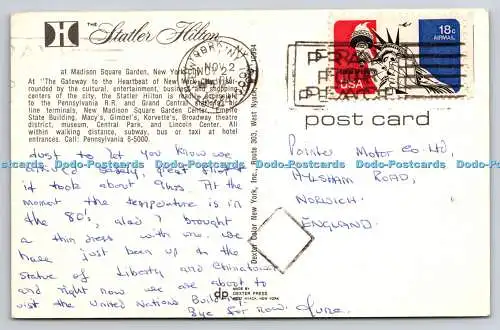 THE
Statler Hilton
at Madison Square Garden, New York
At "The Gateway to the Heartbeat of New York City"
rounded by the cultural, entertainment, business and shopping
centers of the city, the Statler Hilton is readily accessible
to the Pennsylvania R.R. and Grand Central stations, air
line terminals, New Madison Square Garden Center, Empire
State Building, Macy's, Gimbel's, Korvette's, Broadway theatre
district, museum, Central Park, and Lincoln Center. All
within walking distance, subway, bus or taxi at hotel
entrances. Call: PEnnsylvania 6-5000.
Just to let you know we
arrived safely, great flight
it took about 9hrs. At the
moment the temperature is in
the 80's, glad I brought
a thin dress with me. We
have just been up the
Statue of Liberty and Chinatown
and right now we are about to
visit the United Nations Build
Bye for now. June.
Dexter Color New York, Inc., Route 303, West Nyack, 10994
dp
MADE BY
DEXTER PRESS
WEST NYACK, NEW YORK
NOV 2
USA
18c
AIRMAIL
PRAY
FOR
PEACE
post card
Pointer Motor Co Ltd,
AYLSHAM ROAD,
NORWICH
ENGLAND.
Dodo-Postcards Dodo-Postcards Dodo-Postcards Dodo-Postcards Dodo-Postcards